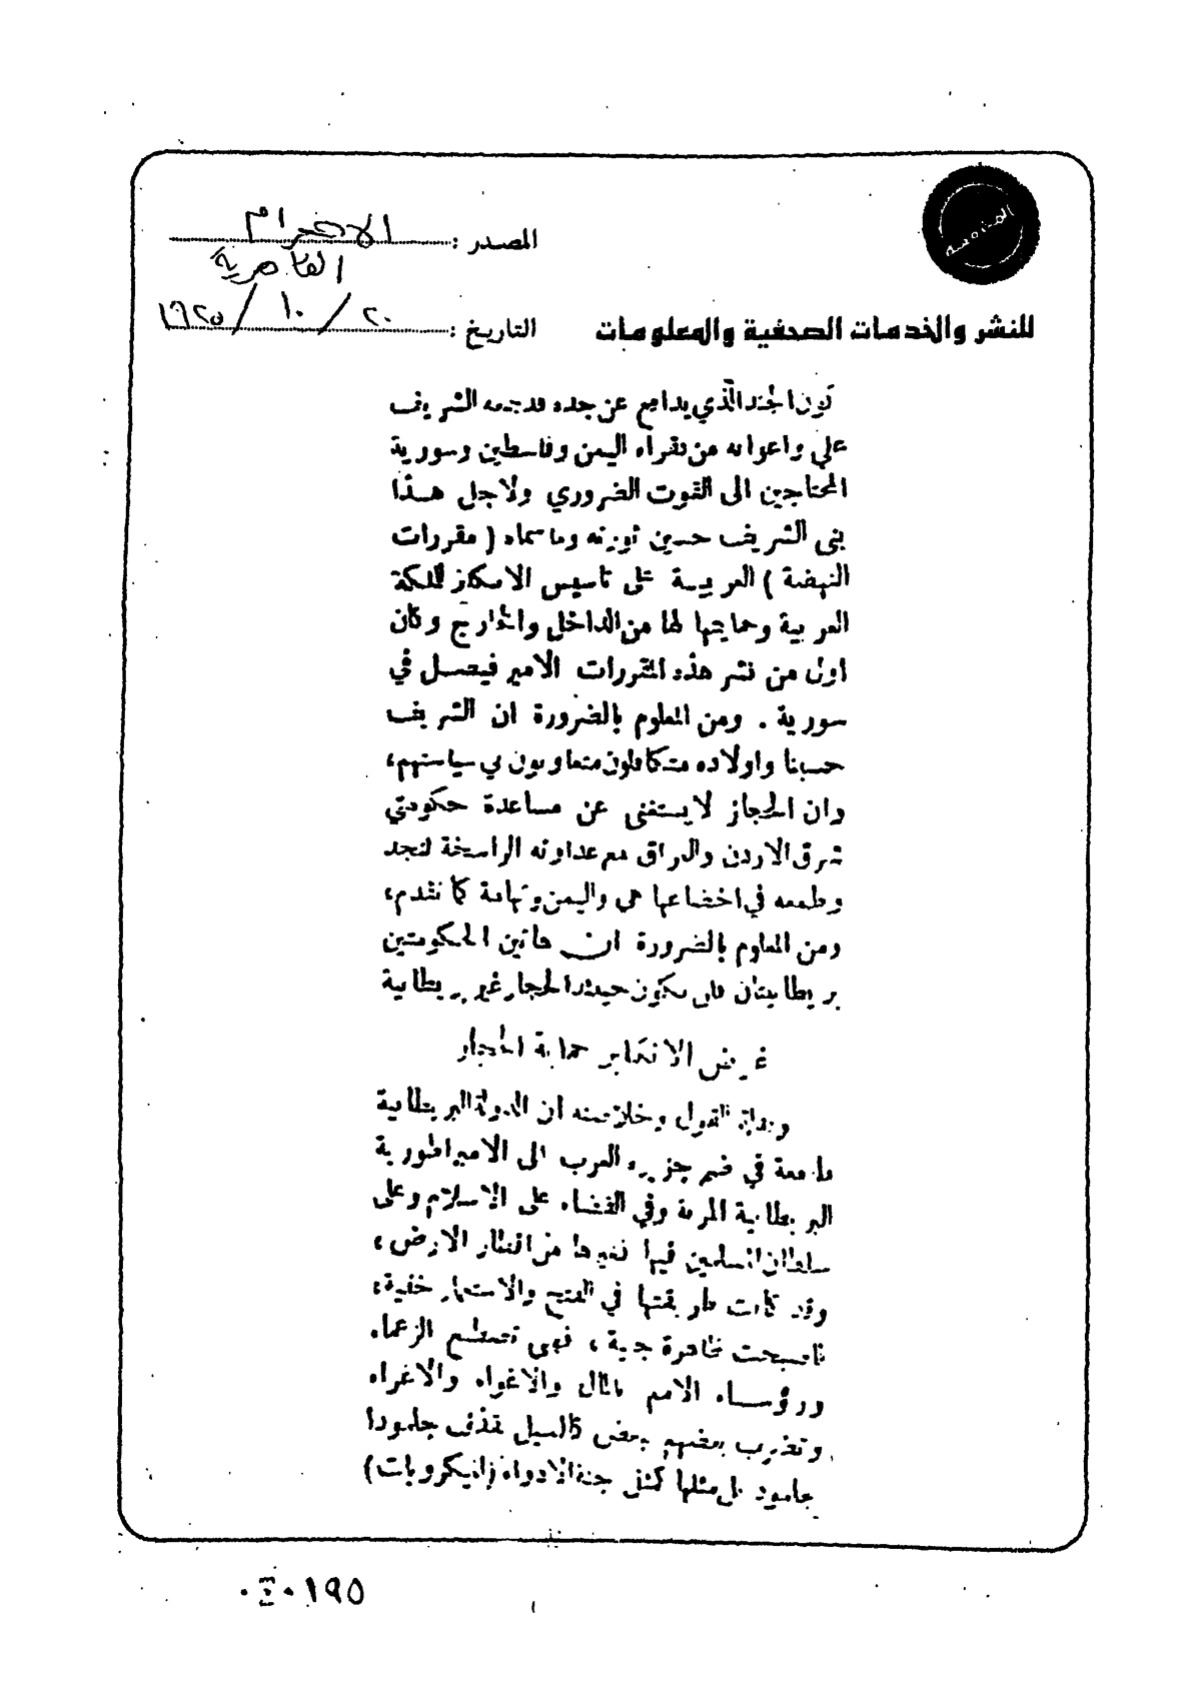 المصدر : الاهرام
القاهرية
للنشر والخدمات الصحفية والمعلومات
التاريخ : ٢٠ / ١٠ / ١٩٢٥
كون الجند الذي يدافع عن جده قد جمعه الشريف
علي واعوانه من فقراء اليمن وفلسطين وسورية
المحتاجين الى القوت الضروري ولاجل هذا
بنى الشريف حسين ثورته وما سماه ( مقررات
النهضة ) العربية على تأسيس الانكليز للملكة
العربية وحمايتها لها من الداخل والخارج وكان
اول من نشر هذه المقررات الامير فيصل في
سورية . ومن المعلوم بالضرورة ان الشريف
حسينا واولاده متكافلون متعاونون في سياستهم،
وان الحجاز لا يستغنى عن مساعدة حكومتي
شرق الاردن والعراق مع عداوته الراسخة لنجد
وطمعه في اخضاعها هي واليمن وتهامة كما تقدم،
ومن المعلوم بالضرورة ان هاتين الحكومتين
بريطانيتان فلن يكون حينئذ الحجاز غير بريطانية
غرض الانكليز حماية الحجاز
القول وخلاصته ان الدولة البريطانية
طامعة في ضم جزيرة العرب الى الامبراطورية
البريطانية المرنة وفي القضاء على الاسلام وعلى
سلطان المسلمين فيها فغيرها من اقطار الارض،
وقد كانت طريقتها في الفتح والاستعمار خفية،
فاصبحت ظاهرة جلية ، فهي تصطنع الزعماء
ورؤساء الامم بالمال والاغواء والاغراء
وتضرب بعضهم ببعض كالسيل يقذف جلمودا
بجلمود بل مثلها كمثل جنة الادواء (الميكروبات)
٠٤٠١٩٥